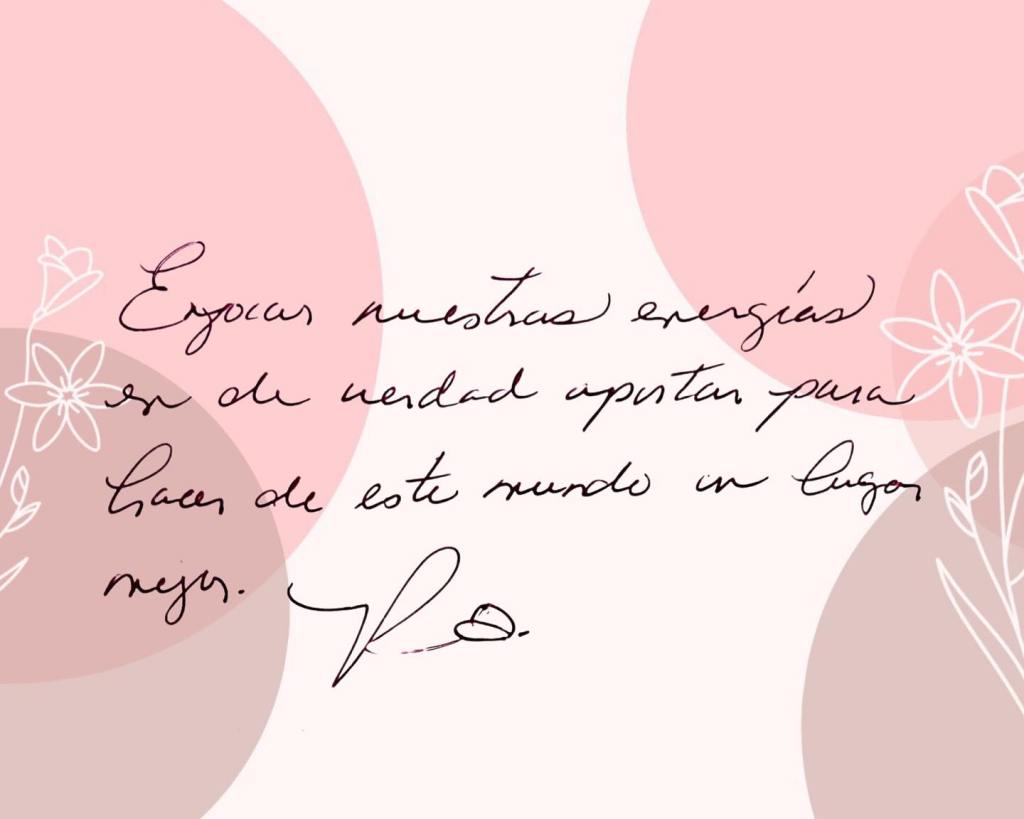 Enfocar nuestras energías
en de verdad aportar para
hacer de este mundo un lugar
mejor.